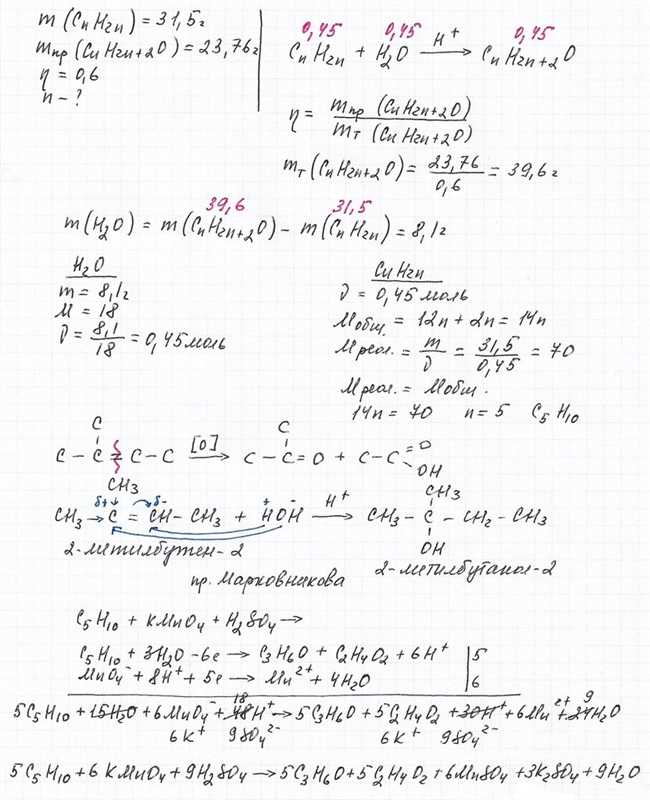 m(CnH2n) = 31,5г
mпр(CnH2n+2O) = 23,76г
η = 0,6
n - ?
0,45 0,45 0,45
CnH2n + H2O —H+→ CnH2n+2O
η = mпр (CnH2n+2O) / mт (CnH2n+2O)
mт (CnH2n+2O) = 23,76 / 0,6 = 39,6г
39,6 31,5
m(H2O) = m(CnH2n+2O) - m(CnH2n) = 8,1г
H2O
m = 8,1г
M = 18
ν = 8,1 / 18 = 0,45 моль
CnH2n
ν = 0,45 моль
Mобщ. = 12n + 2n = 14n
Mреал. = m / ν = 31,5 / 0,45 = 70
Mреал. = Mобщ.
14n = 70 n = 5 C5H10
C C
C - C = C - C —[O]→ C - C = O + C - C =O OH
CH3 CH3
δ+ δ- + -
CH3 → C = CH - CH3 + HOH —H+→ CH3 - C - CH2 - CH3
OH
2-метилбутен-2
2-метилбутанол-2
пр. Марковникова
C5H10 + KMnO4 + H2SO4 →
C5H10 + 3H2O - 6e → C3H6O + C2H4O2 + 6H+ | 5
MnO4- + 8H+ + 5e → Mn2+ + 4H2O | 6
18 9
5C5H10 + 15H2O + 6MnO4- + 48H+ → 5C3H6O + 5C2H4O2 + 30H+ + 6Mn2+ + 24H2O
6K+ 9SO4 2- 6K+ 9SO4 2-
5C5H10 + 6KMnO4 + 9H2SO4 → 5C3H6O + 5C2H4O2 + 6MnSO4 + 3K2SO4 + 9H2O